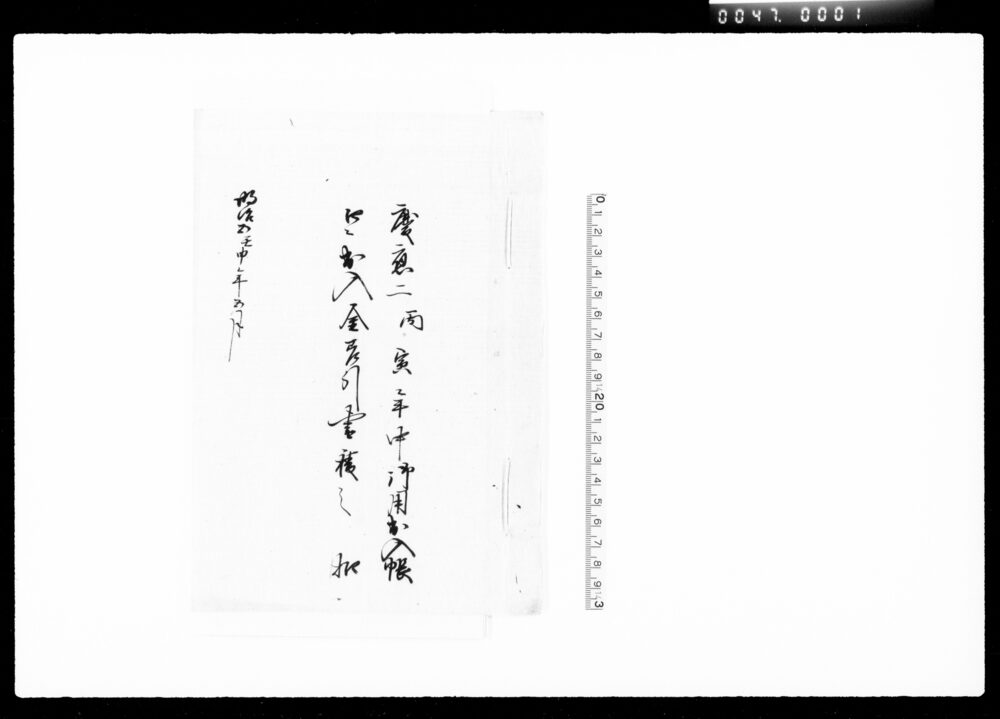 0047. 0001
慶應二丙寅年中御用出入帳
出入金差引書積 扣
明治五壬申年五月
0 1 2 3 4 5 6 7 8 9 20 1 2 3 4 5 6 7 8 9 3